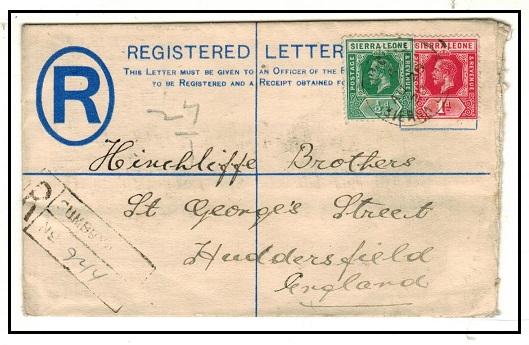 REGISTERED LETTER
THIS LETTER MUST BE GIVEN TO AN OFFICER OF THE
TO BE REGISTERED AND A RECEIPT OBTAINED FO
R
SIERRA LEONE
POSTAGE
& REVENUE
½d
SIERRA LEONE
& REVENUE
1d
27
Hinchliffe Brothers
St George's Street
Huddersfield
England
R
No 944